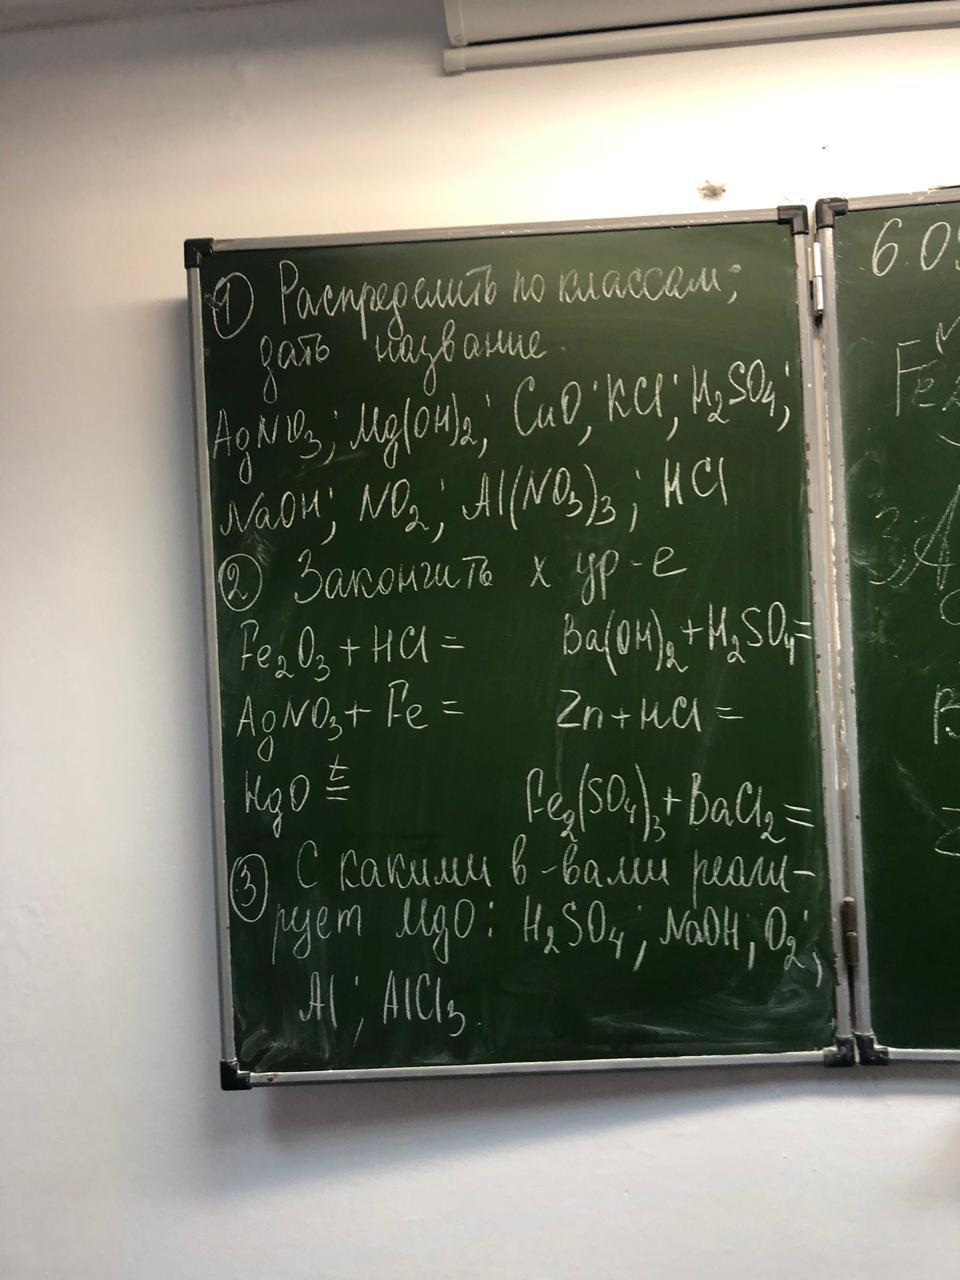 ① Распределить по классам;
дать название.
AgNO₃; Mg(OH)₂; CuO; KCl; H₂SO₄;
NaOH; NO₂; Al(NO₃)₃; HCl
② Закончить х ур-е
Fe₂O₃ + HCl = Ba(OH)₂ + H₂SO₄ =
AgNO₃ + Fe = Zn + HCl =
HgO t= Fe₂(SO₄)₃ + BaCl₂ =
③ С какими в-вами реаги-
рует MgO: H₂SO₄; NaOH, O₂;
Al; AlCl₃.
6.09
Fe₂